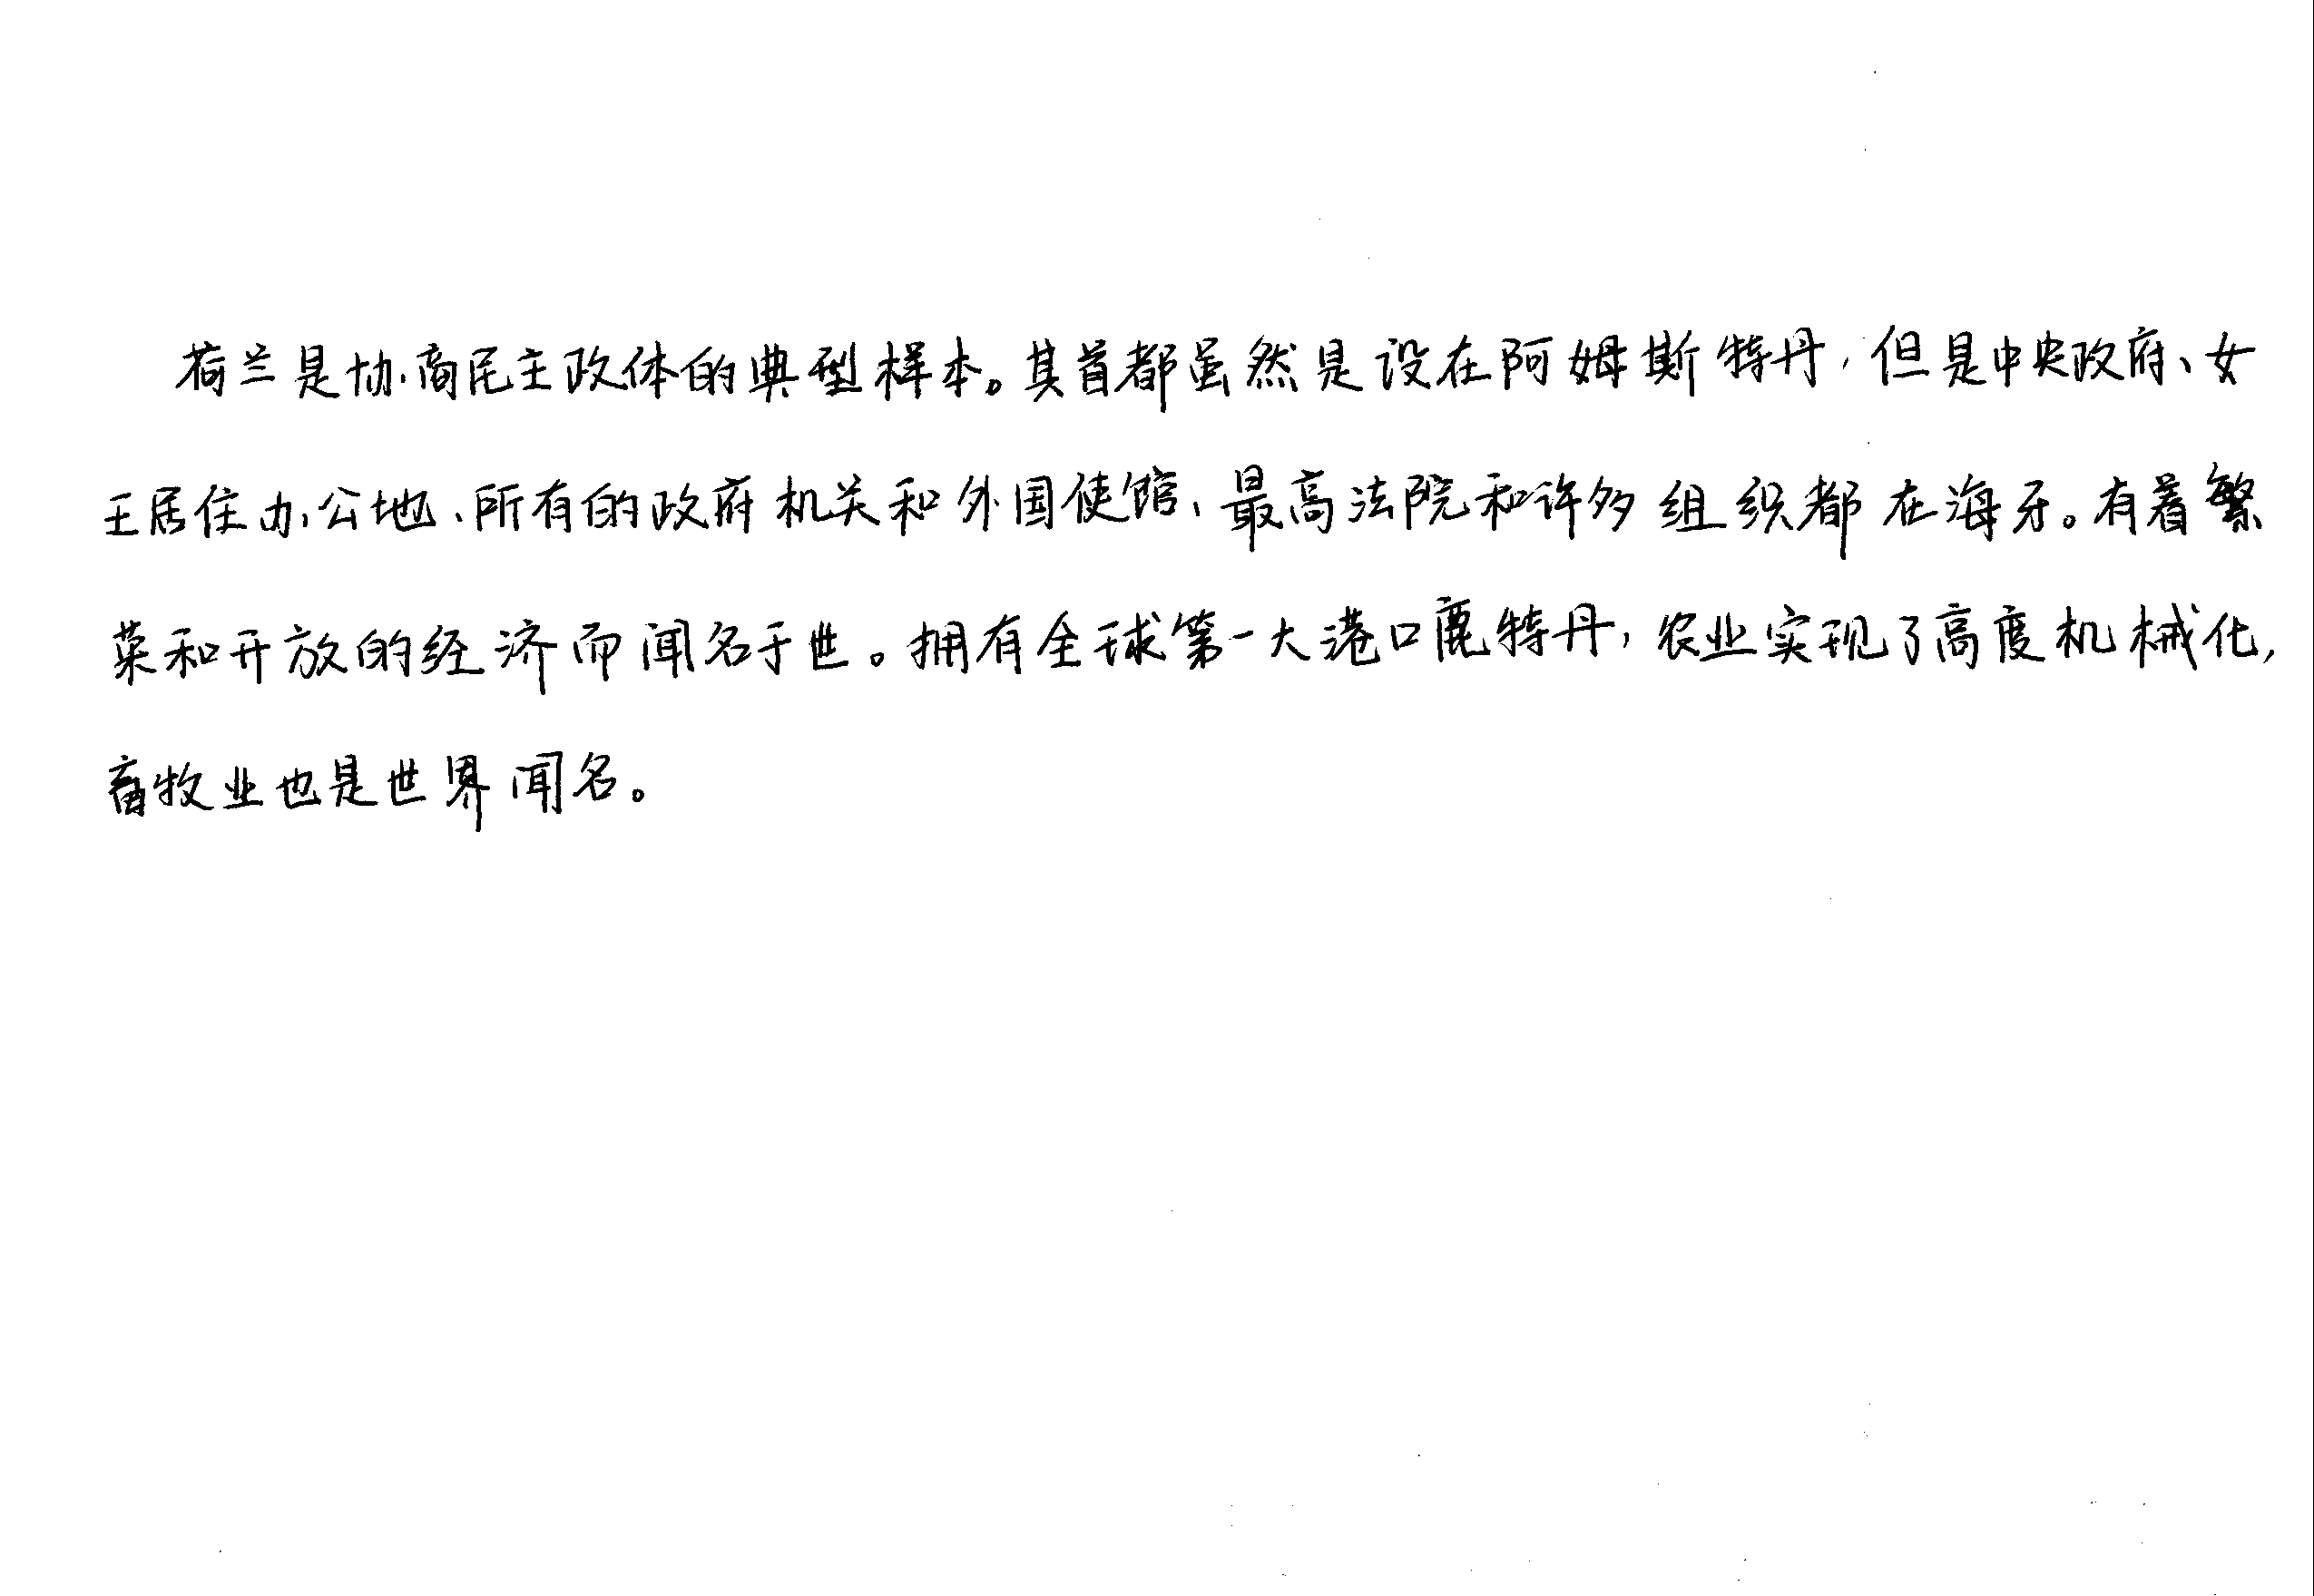 荷兰是协商民主政体的典型样本。其首都虽然是设在阿姆斯特丹，但是中央政府、女
王居住办公地、所有的政府机关和外国使馆、最高法院和许多组织都在海牙。有着繁
荣和开放的经济而闻名于世。拥有全球第一大港口鹿特丹，农业实现了高度机械化，
畜牧业也是世界闻名。